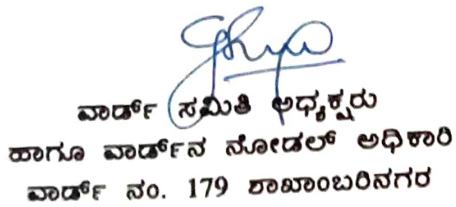 ವಾರ್ಡ್ ಸಮಿತಿ ಅಧ್ಯಕ್ಷರು
ಹಾಗೂ ವಾರ್ಡ್‌ನ ನೋಡಲ್ ಅಧಿಕಾರಿ
ವಾರ್ಡ್ ನಂ. 179 ಶಾಖಾಂಬರಿನಗರ